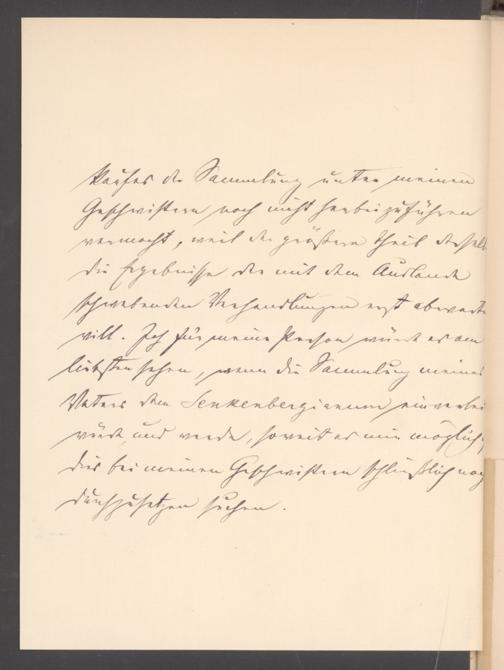 kaufes der Sammlung unter meinen
Geschwistern noch nicht herbeizuführen
vermocht, weil der größere Theil derselb
die Ergebnisse der mit dem Auslande
schwebenden Verhandlungen erst abwarte
will. Ich für meine Person würde es am
liebsten sehen, wenn die Sammlung meines
Vaters dem Senkenbergianum einverlei
würde und werde, soweit es mir möglich,
dies bei meinen Geschwistern schließlich noch
durchzusetzen suchen.